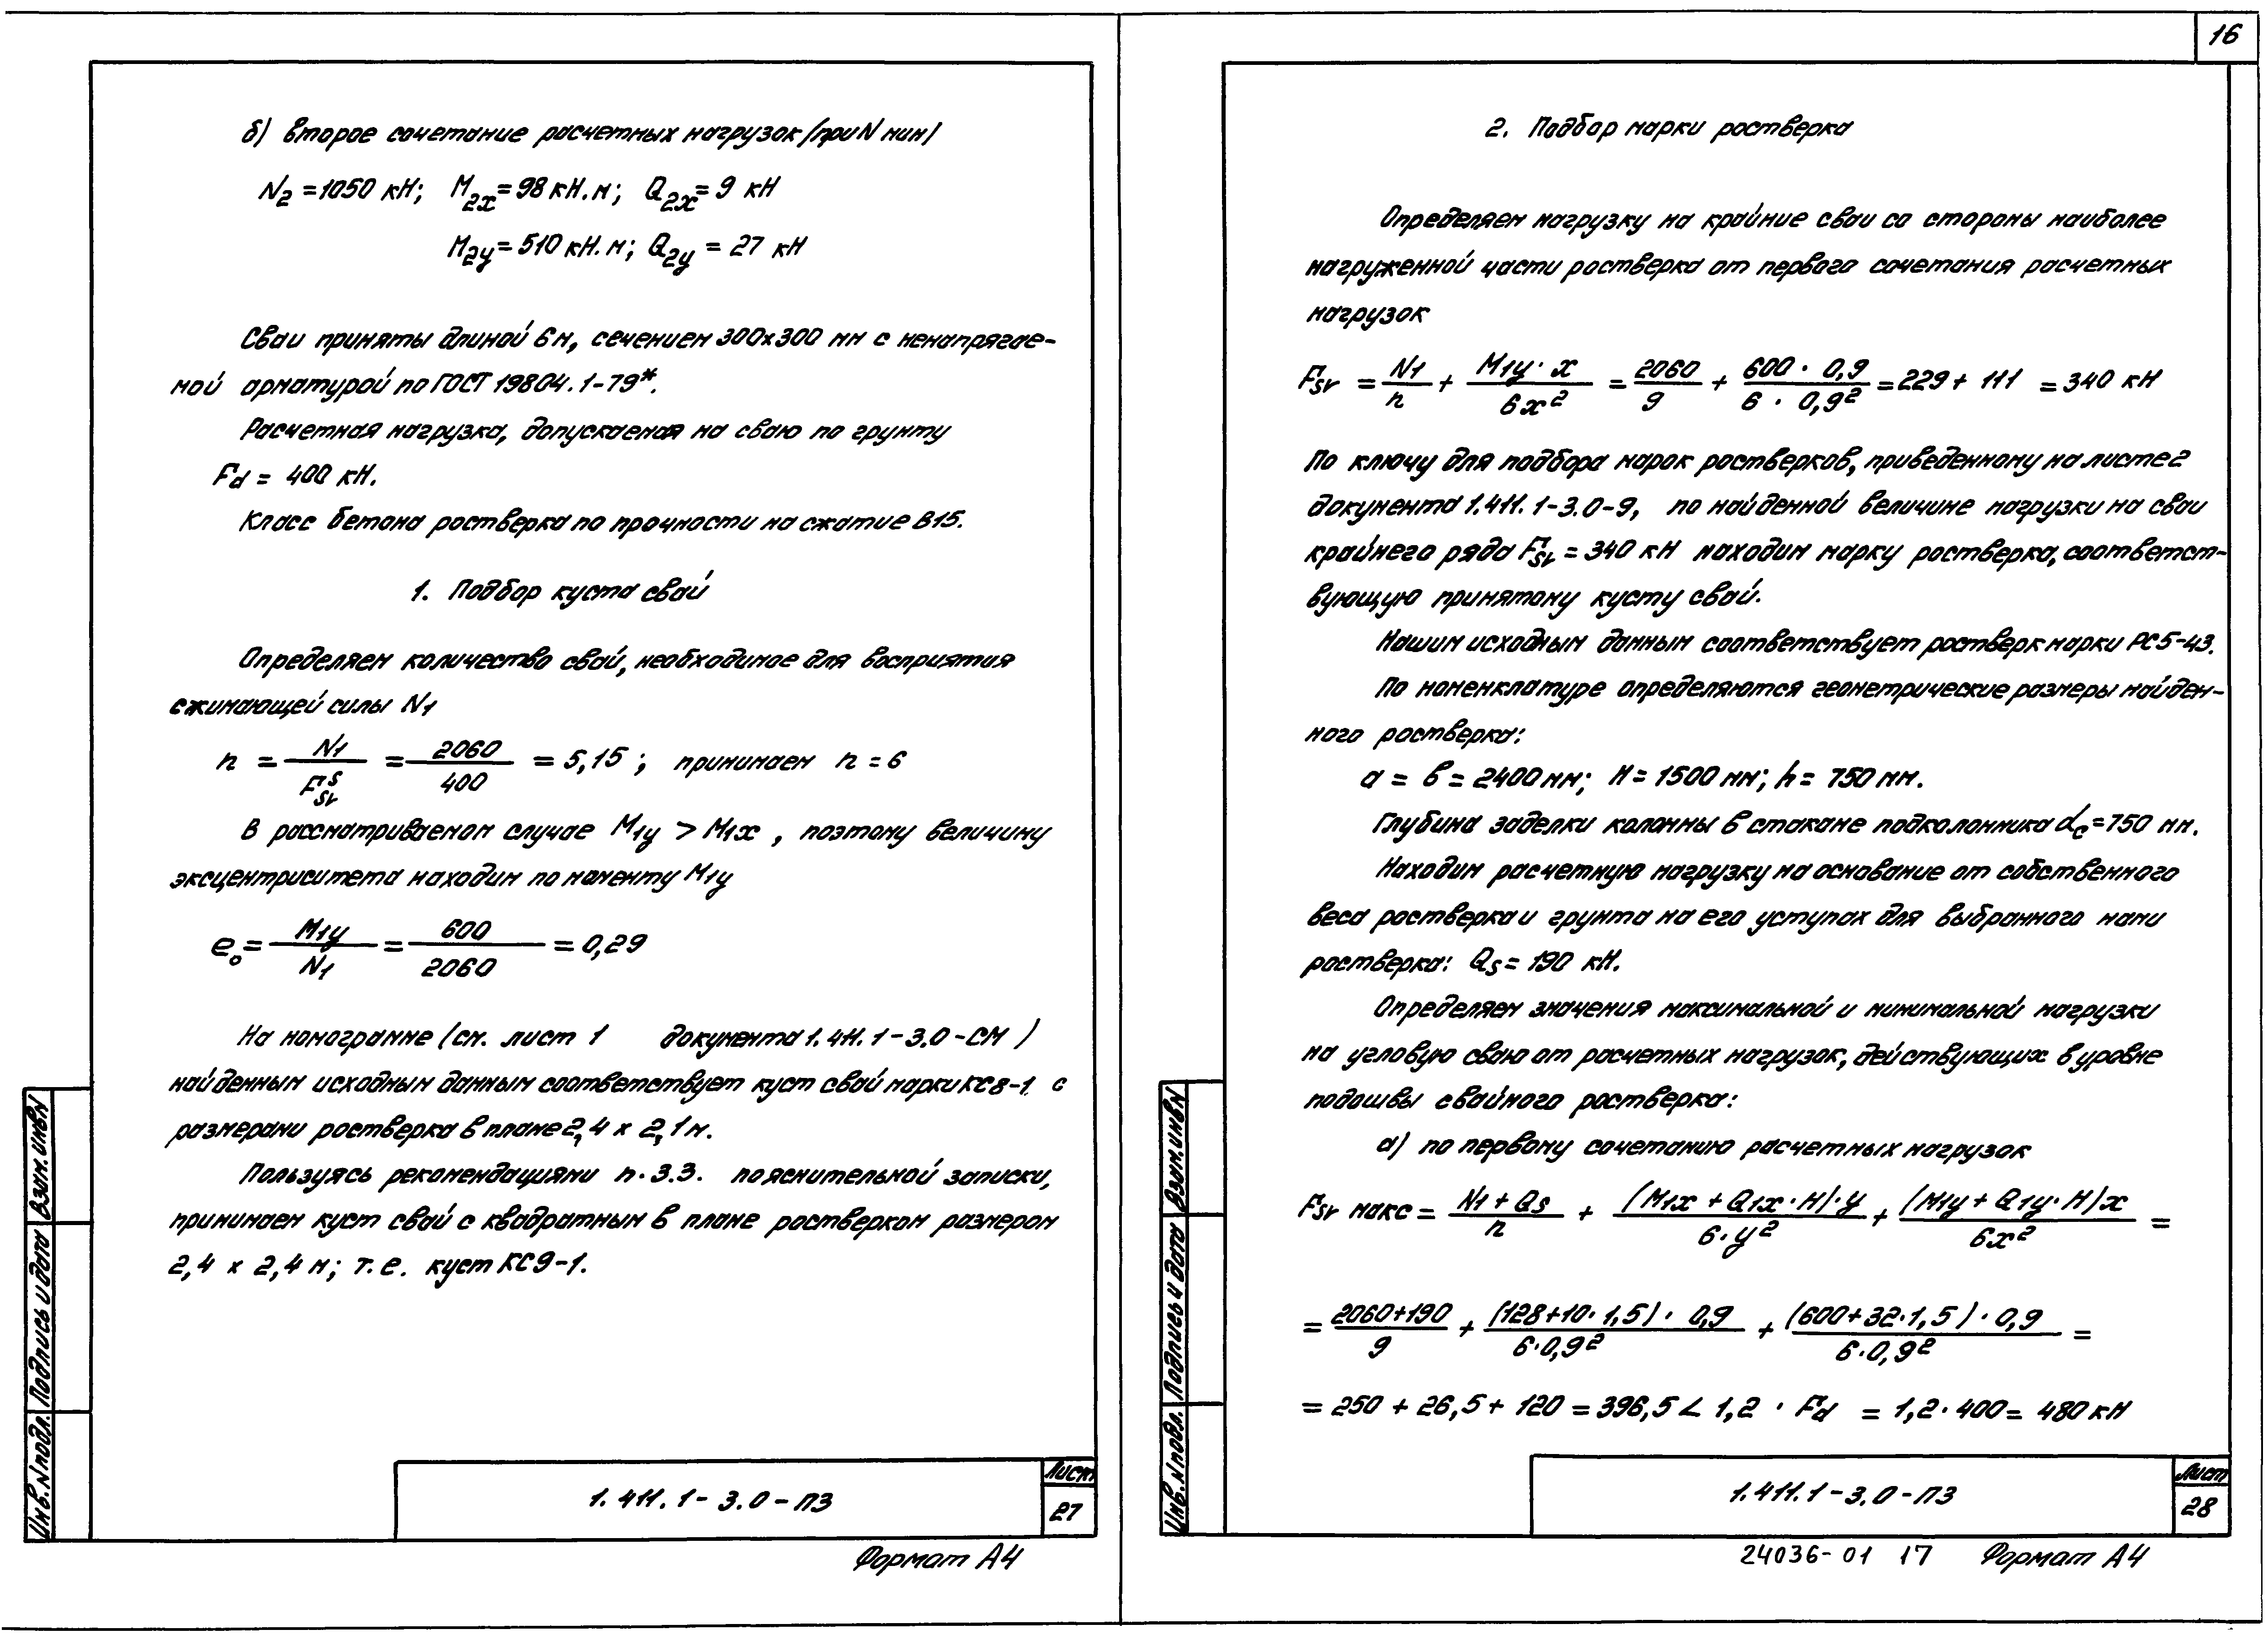 16
б) второе сочетание расчетных нагрузок (при N мин)
N2 = 1050 кН; M2x = 98 кН.м; Q2x = 9 кН
M2y = 510 кН.м; Q2y = 27 кН
Сваи приняты длиной 6 м, сечением 300х300 мм с ненапрягае-
мой арматурой по ГОСТ 19804.1-79*.
Расчетная нагрузка, допускаемая на сваю по грунту
Fd = 400 кН.
Класс бетона ростверка по прочности на сжатие В15.
1. Подбор куста свай
Определяем количество свай, необходимое для восприятия
сжимающей силы N1
n = N1 / F^s sv = 2060 / 400 = 5,15; принимаем n = 6
В рассматриваемом случае M1y > M1x, поэтому величину
эксцентриситета находим по моменту M1y
e₀ = M1y / N1 = 600 / 2060 = 0,29
На номограмме (см. лист 1 документа 1.411.1-3.0-СМ)
найденным исходным данным соответствует куст свай марки КС8-1 с
размерами ростверка в плане 2,4 х 2,1 м.
Пользуясь рекомендациями п.3.3. пояснительной записки,
принимаем куст свай с квадратным в плане ростверком размером
2,4 х 2,4 м; т.е. куст КС9-1.
Инв.N подл. Подпись и дата Взам.инвN
1.411.1-3.0-ПЗ
Лист
27
Формат А4
2. Подбор марки ростверка
Определяем нагрузку на крайние сваи со стороны наиболее
нагруженной части ростверка от первого сочетания расчетных
нагрузок
Fsv = N1 / n + M1y · x / 6x² = 2060 / 9 + 600 · 0,9 / 6 · 0,9² = 229 + 111 = 340 кН
По ключу для подбора марок ростверков, приведенному на листе 2
документа 1.411.1-3.0-9, по найденной величине нагрузки на сваи
крайнего ряда Fsv = 340 кН находим марку ростверка, соответст-
вующую принятому кусту свай.
Нашим исходным данным соответствует ростверк марки РС5-43.
По номенклатуре определяются геометрические размеры найден-
ного ростверка:
a = в = 2400 мм; H = 1500 мм; h = 750 мм.
Глубина заделки колонны в стакане подколонника dc = 750 мм.
Находим расчетную нагрузку на основание от собственного
веса ростверка и грунта на его уступах для выбранного нами
ростверка: Qs = 190 кН.
Определяем значения максимальной и минимальной нагрузки
на угловую сваю от расчетных нагрузок, действующих в уровне
подошвы свайного ростверка:
а) по первому сочетанию расчетных нагрузок
Fsv макс = N1 + Qs / n + (M1x + Q1x · H) · y / 6 · y² + (M1y + Q1y · H) x / 6x² =
= 2060+190 / 9 + (128+10 · 1,5) · 0,9 / 6 · 0,9² + (600+32 · 1,5) · 0,9 / 6 · 0,9² =
= 250 + 26,5 + 120 = 396,5 < 1,2 · Fd = 1,2 · 400 = 480 кН
Инв.N подл. Подпись и дата Взам.инвN
1.411.1-3.0-ПЗ
Лист
28
24036-01 17 Формат А4